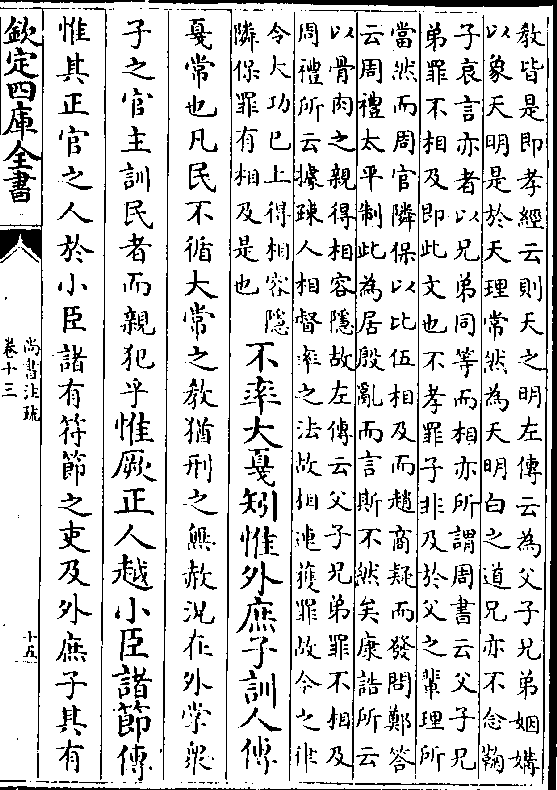 教皆是即孝經云則天之明左傳云為父子兄弟姻媾
以象天明是於天理常然為天明白之道兄亦不念鞠
子哀言亦者以兄弟同等而相亦所謂周書云父子兄
弟罪不相及即此文也不孝罪子非及於父之輩理所
當然而周官隣保以比伍相及而趙商疑而發問鄭答
云周禮太平制此為居殷亂而言斯不然矣康誥所云
以骨肉之親得相容隱故左傳云父子兄弟罪不相及
周禮所云據疎人相督率之法故相連獲罪故今之律
令大功已上得相容隱
隣保罪有相及是也
不率大戛矧惟外庶子訓人傳
戛常也凡民不循大常之教猶刑之無赦況在外掌衆
子之官主訓民者而親犯乎惟厥正人越小臣諸節傳
惟其正官之人於小臣諸有符節之吏及外庶子其有
欽定四庫全書
尚書注疏
卷十三
十五